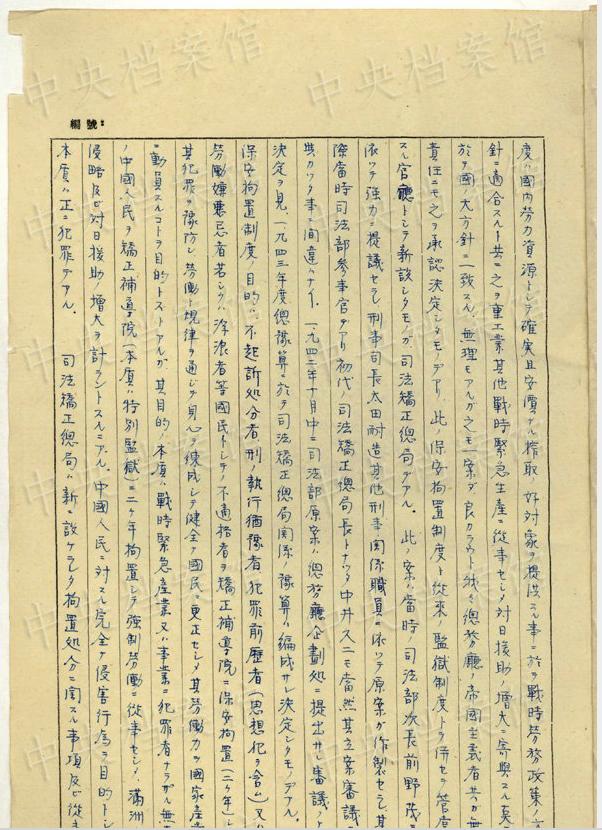 中央档案馆
編號:
度ハ国内労力資源トシテ確実且安價ナル搾取ノ好対象ヲ提供スル事ニ於テ戦時労務政策ノ方
針ニ適合スルト共ニ之ヲ重工業其他戦時緊急生産ニ從事セシメ対日援助ノ増大ニ寄與スル莫ニ
於テ國ノ大方針ニ一致スル、無理モアルガ之モ一案ダ良カラウト
責任ニモ之ヲ承認決定シタモノデアリ、此ノ保安拘置制度ト從來ノ監獄制度トヲ併セテ管
スル官廳トシテ新設シタモノガ司法矯正總局デアル。此ノ案ハ當時ノ司法部次長前野茂
依ッテ強力ニ提議セラレ刑事司長太田耐造其他刑事関係職員ニ依ッテ原案ガ作製セラレ其
際當時司法部参事官デアリ初代ノ司法矯正總局長トナッタ中井久二モ當然其立案審議
與カッタ事ニ間違ハナイ、一九四二年十月中ニ司法部原案ハ總務廳企劃処ニ提出サレ審議
決定ヲ見、一九四三年度總豫算ニ於テ司法矯正總局関係ノ豫算ハ編成サレ決定シタモノデアル。
保安拘置制度ノ目的ハ不起訴処分者、刑ノ執行猶豫者、犯罪前歴者(思想犯ヲ含ム)又ハ
労働嫌悪忌者若シクハ浮浪者等國民トシテノ不適格者ヲ矯正補導院ニ保安拘置(二ケ年)シ
其犯罪ヲ豫防シ労働ト規律ヲ通ジテ見心ヲ練成シテ健全ナ國民ニ更正セシメ其労働力ヲ國家産
ニ動員スルコトヲ目的トスルトアルガ其目的ノ本質ハ戦時緊急産業又ハ事業ニ犯罪者ナラザル無
ノ中國人民ヲ矯正補導院(本質ハ特別監獄)ニ二ケ年拘置シテ強制労働ニ從事セシメ、満洲
侵略及ビ対日援助ノ増大ヲ計ラントスルニアル。中國人民ニ対スル完全ナ侵害行為ヲ目的ト
本質ハ正ニ犯罪デアル。 司法矯正總局ハ新ニ設ケラレタ拘置処分ニ関スル事項及ビ從